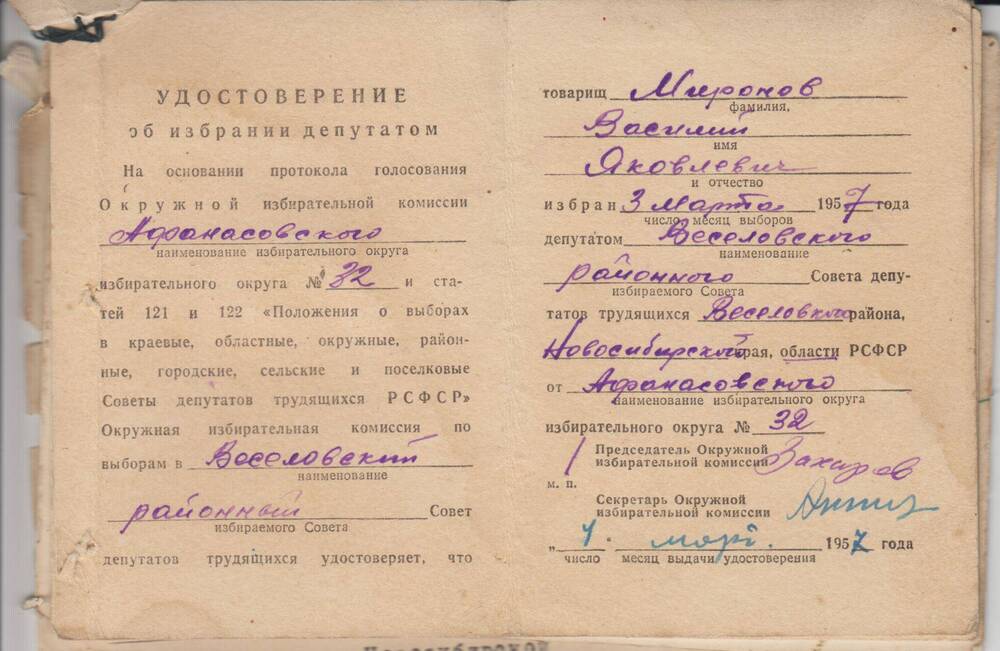 УДОСТОВЕРЕНИЕ
об избрании депутатом
На основании протокола голосования
Окружной избирательной комиссии
Афанасовского
наименование избирательного округа
избирательного округа № 32 и ста-
тей 121 и 122 «Положения о выборах
в краевые, областные, окружные, район-
ные, городские, сельские и поселковые
Советы депутатов трудящихся РСФСР»
Окружная избирательная комиссия по
выборам в Веселовский
наименование
районный Совет
избираемого Совета
депутатов трудящихся удостоверяет, что
товарищ Миронов
фамилия,
Василий
имя
Яковлевич
и отчество
избран 3 Марта 1957 года
число месяц выборов
депутатом Веселовского
наименование
районного Совета депу-
избираемого Совета
татов трудящихся Веселовского района,
Новосибирской края, области РСФСР
от Афанасовского
наименование избирательного округа
избирательного округа № 32
Председатель Окружной
избирательной комиссии Захаров
м. п.
Секретарь Окружной
избирательной комиссии
„ 4. март. 1957 года
число месяц выдачи удостоверения